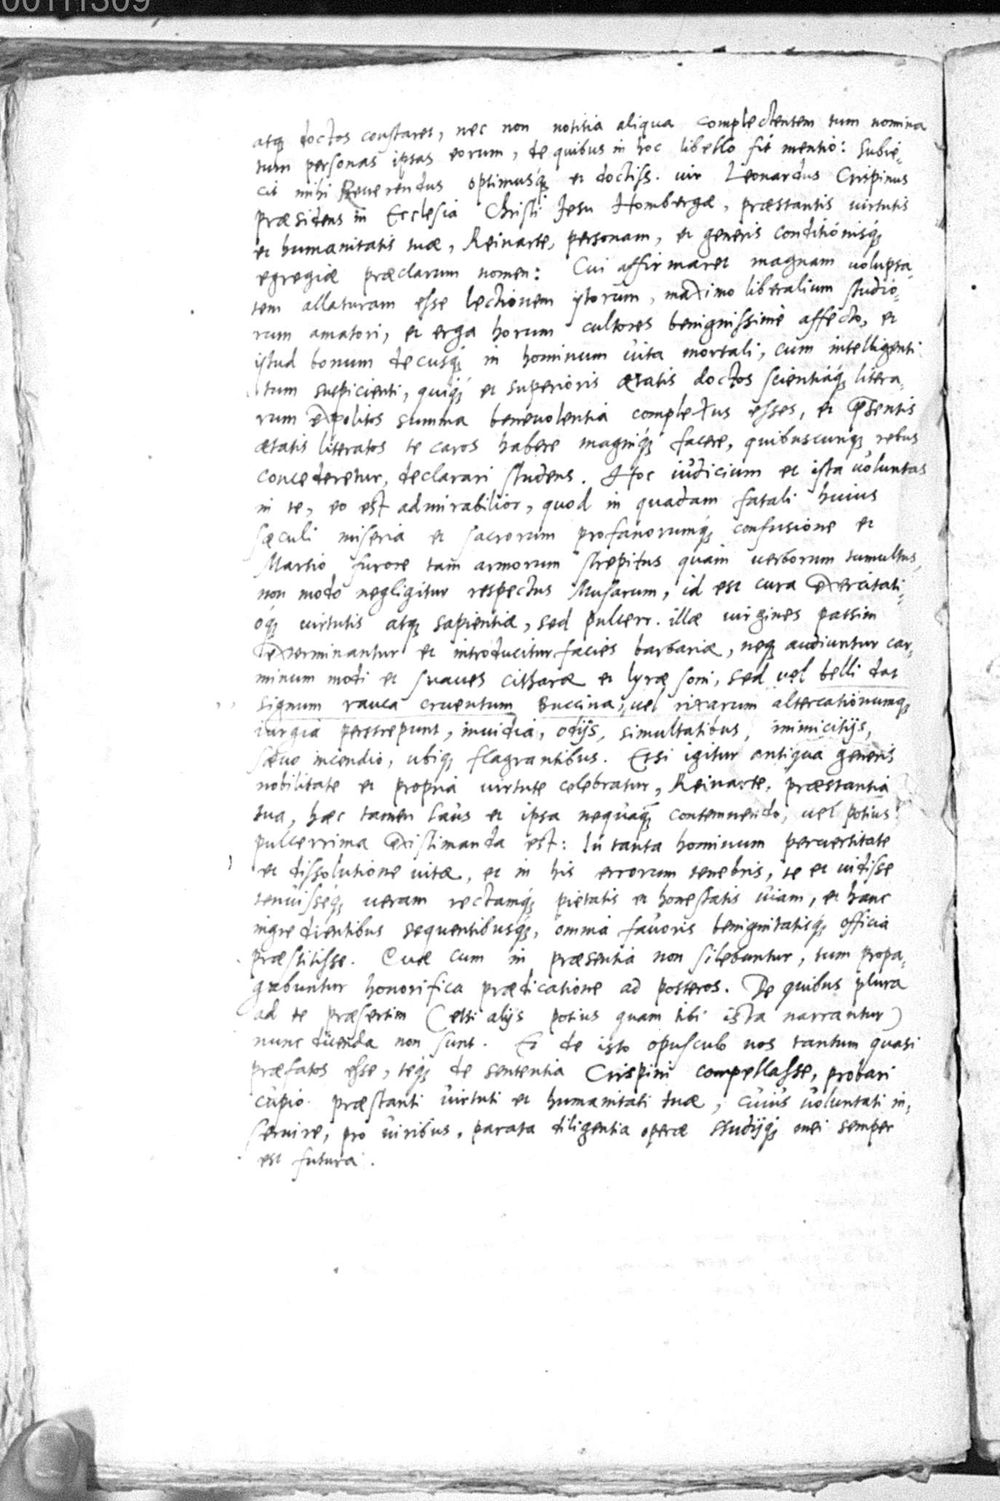 00111309
atq; doctos constaret, nec non notitia aliqua complectentem tum nomina
tum personas ipsas eorum, de quibus in hoc libello fit mentio: Subie-
cit mihi Reverendus optimusq; et doctiss. vir Leonardus Crispinus
præsidens in Ecclesia Christi Jesu Hombergæ, præstantis virtutis
et humanitatis tuæ, Reinarte, personam, et generis conditionisq;
egregiæ præclarum nomen: Cui affirmaret magnam volupta-
tem allaturam esse lectionem istorum, maximo liberalium studio-
rum amatori, et erga horum cultores benignissime affecto, et
istud bonum decusq; in hominum vita mortali, cum intelligenti
tum suspicienti, quiq; et superioris ætatis doctos scientiaq; litera-
rum expolitos summa benevolentia complexus esses, et presentis
ætatis literatos te caros habere magniq; facere, quibuscunq; rebus
concederetur, declarari studens. Hoc iudicium et ista voluntas
in te, eo est admirabilior, quod in quadam fatali huius
sæculi miseria et sacrorum profanorumq; confusione et
Martio furore tam armorum strepitus quam verborum tumultus,
non modo negligitur respectus Musarum, id est cura exercitati-
oq; virtutis atq; sapientiæ, sed pulcerr. illæ virgines passim
exterminantur et introducitur facies barbariæ, neq; audiuntur car-
minum modi et suaves citharæ et lyræ soni, sed vel belli dat
signum rauca cruentum Buccina, vel rixarum altercationumq;
iurgia perstrepunt, invidia, odijs, simultatibus, inimicitijs,
sævo incendio, ubiq; flagrantibus. Etsi igitur antiqua generis
nobilitate et propria virtute celebratur, Reinarte, præstantia
tua, hæc tamen laus et ipsa nequaq; contemnenda, vel potius
pulcerrima existimanda est: In tanta hominum perversitate
et dissolutione vitæ, et in his errorum tenebris, te et vidisse
tenuisseq; veram rectamq; pietatis et honestatis viam, et hanc
ingredientibus sequentibusq;, omnia favoris benignitatisq; officia
præstitisse. Quæ cum in præsentia non silebuntur, tum propa-
gabuntur honorifica prædicatione ad posteros. De quibus plura
ad te præsertim (etsi alijs potius quam tibi ista narrantur)
nunc dicenda non sunt. Et de isto opusculo nos tantum quasi
præfatos esse, teq; de sententia Crispini compellasse, probari
cupio præstanti virtuti et humanitati tuæ, cuius voluntati in-
servire, pro viribus, parata diligentia operæ studijq; mei semper
est futura.